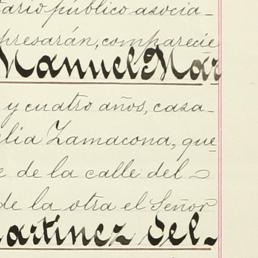 tario público asocia-
presarán, comparecie
Manuel Mar
y cuatro años, casa-
lia Zamacona, que
e de la calle del
de la otra el Señor
artinez Sel-